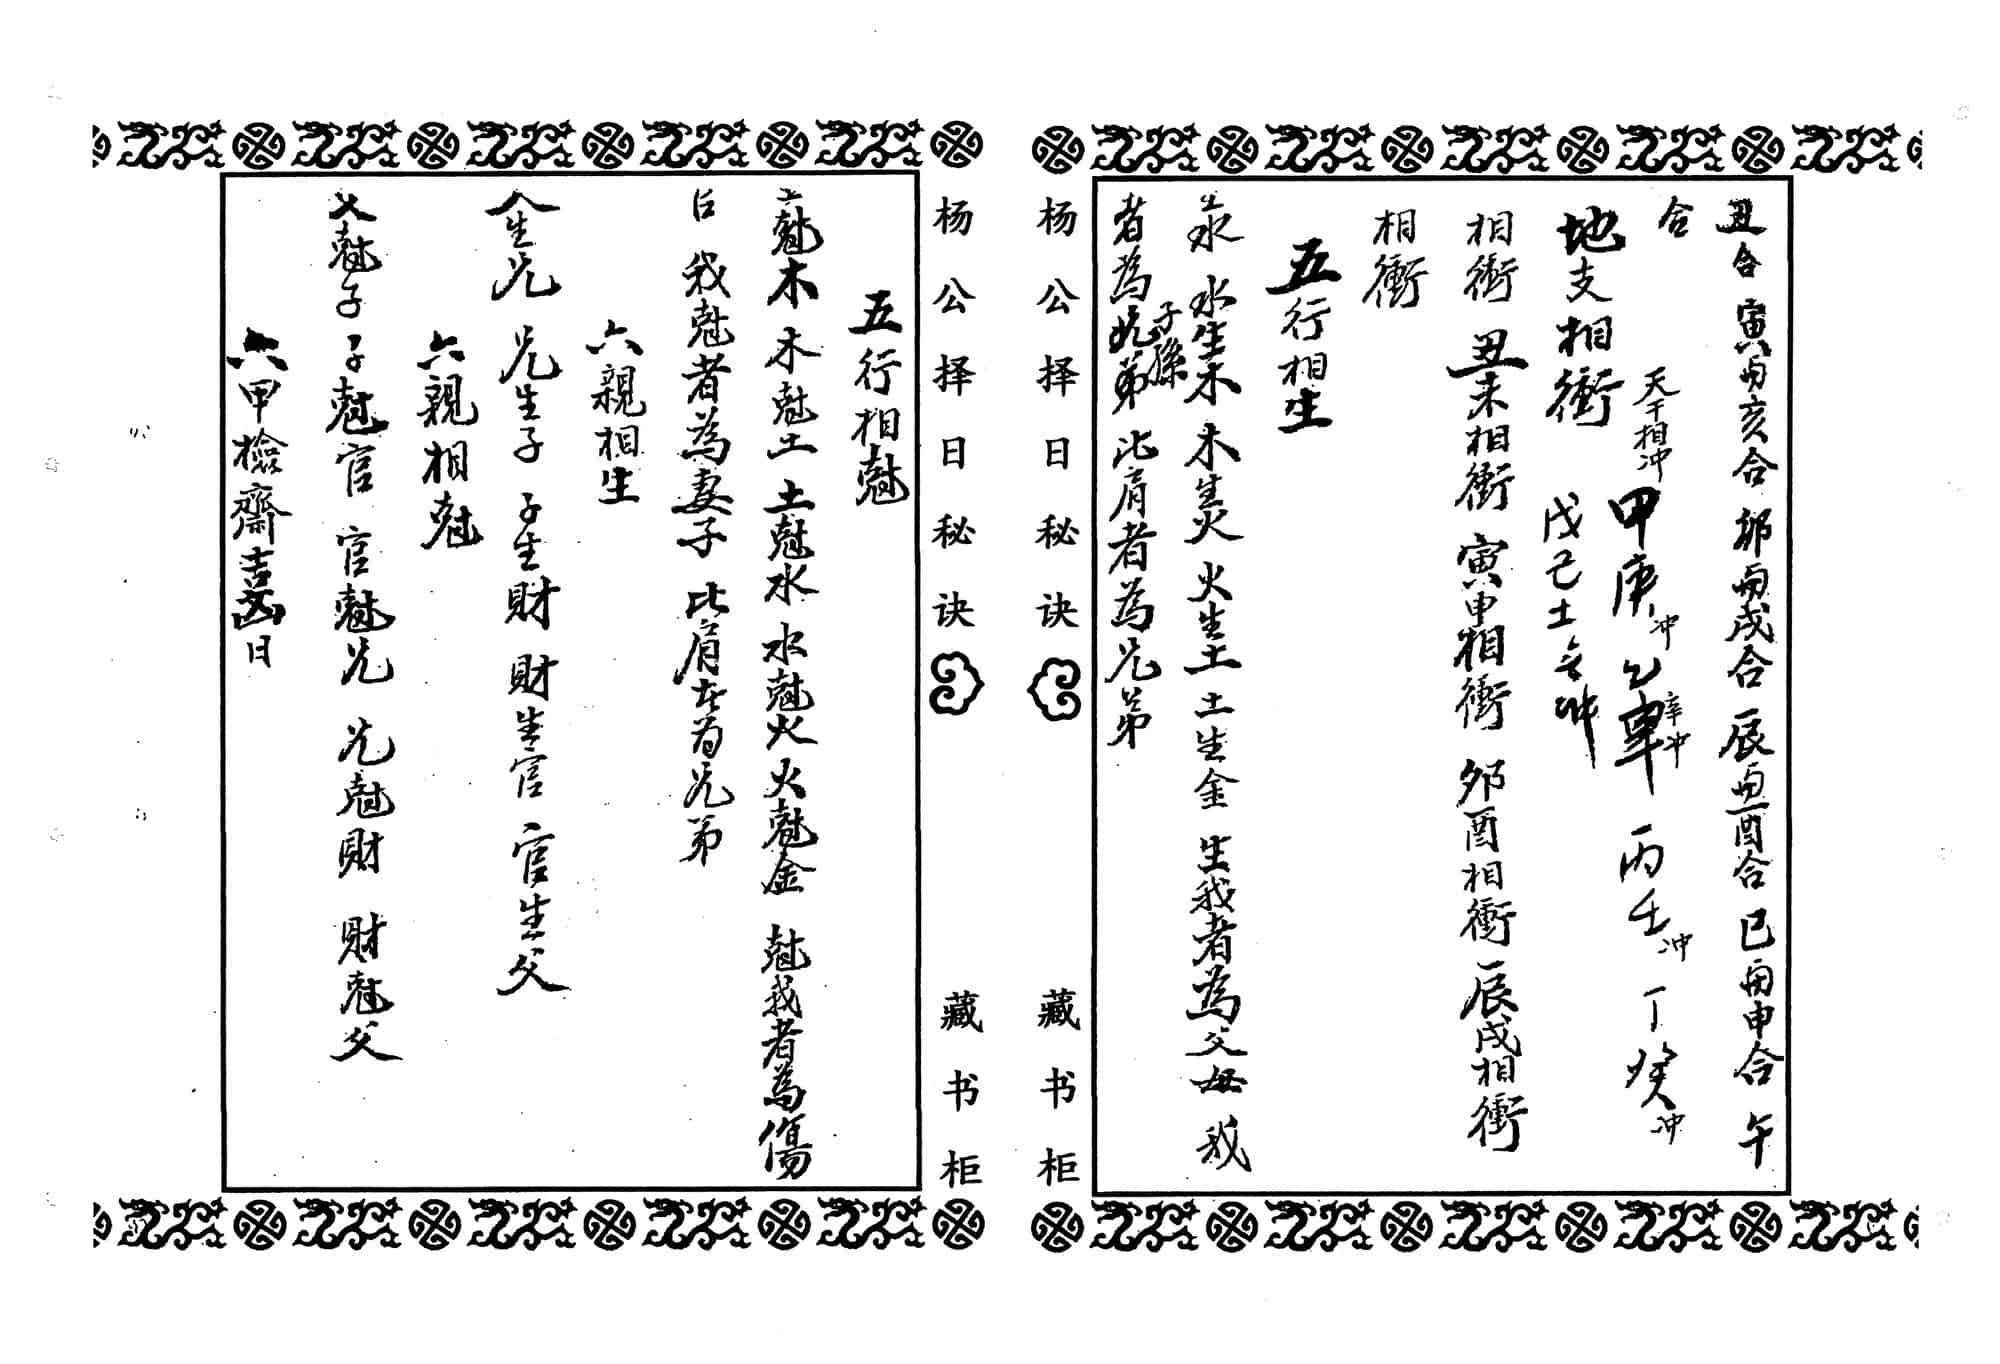 丑合 寅與亥合 卯與戌合 辰與酉合 巳與申合 午
合
地支相衝
天干相冲 甲庚冲 乙辛冲 丙壬冲 丁癸冲
戊己土無冲
相衝 丑未相衝 寅申相衝 卯酉相衝 辰戌相衝
相衝
五行相生
水 水生木 木生火 火生土 土生金 生我者為父母 我
者為兄弟 比肩者為兄弟
子孫
杨公择日秘诀
藏书柜
杨公择日秘诀
藏书柜
五行相尅
尅木 木尅土 土尅水 水尅火 火尅金 尅我者為傷
我尅者為妻子 比肩者为兄弟
六親相生
生兄 兄生子 子生財 財生官 官生父
六親相尅
父尅子 子尅官 官尅兄 兄尅財 財尅父
六甲檢齋吉凶日